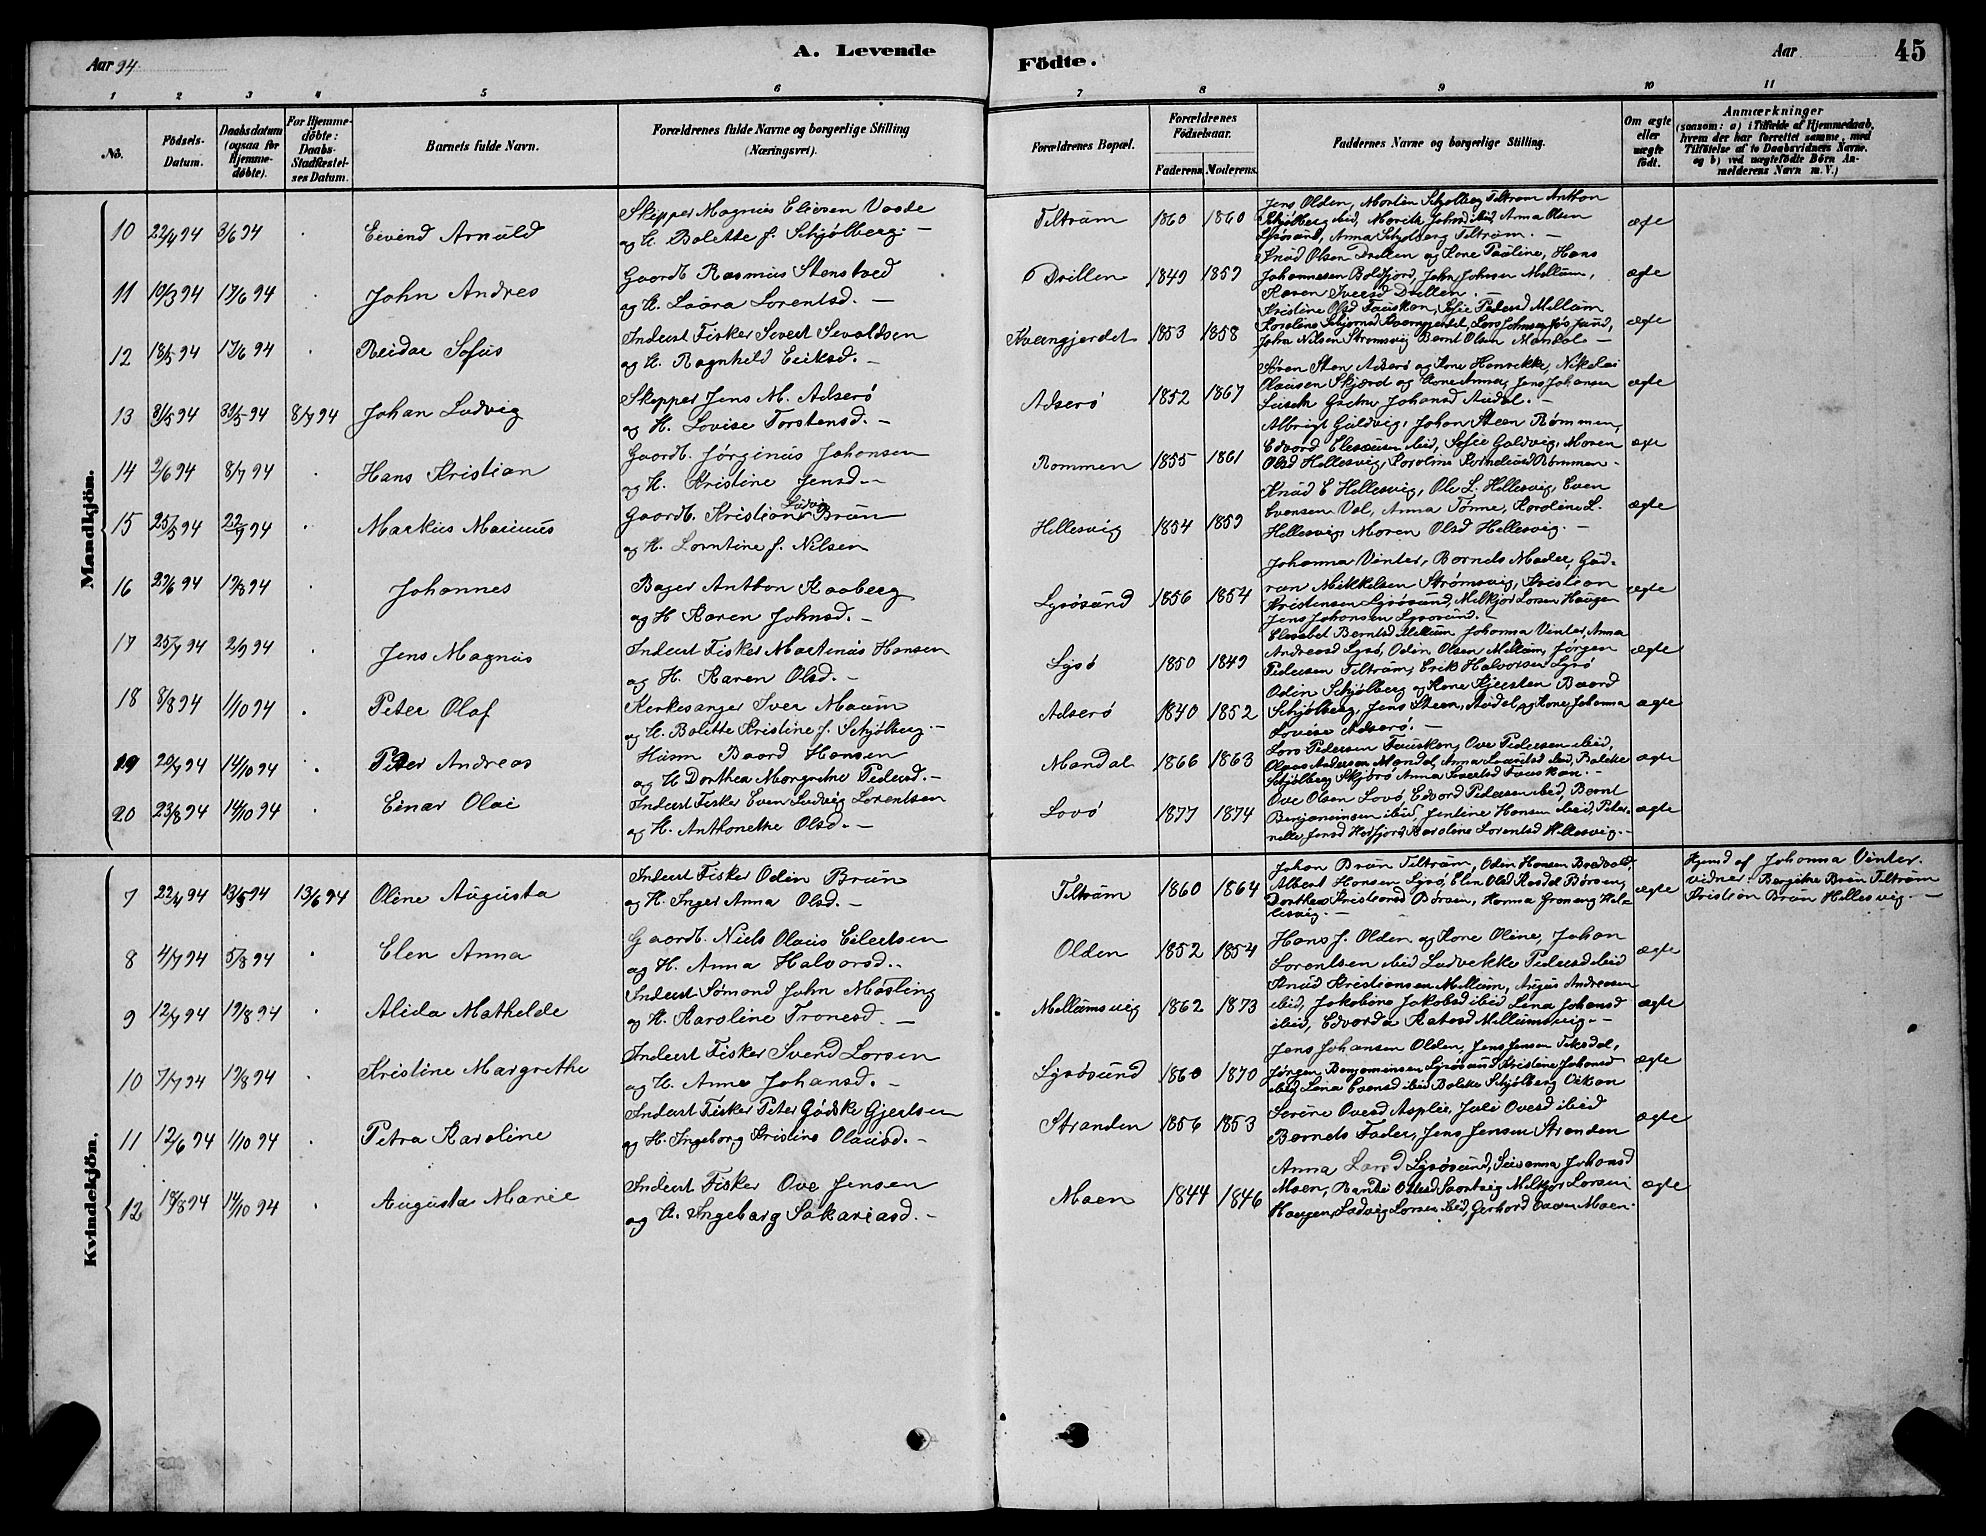 Aar 94
A. Levende
Födte.
Aar
45
1 2 3 4 5 6 7 8 9 10 11
No.
Födsels-Datum.
Daabsdatum (ogsaa for Hjemme-döbte).
For Hjemme-döbte: Daabs-Stadfæstel-ses Datum.
Barnets fulde Navn.
Forældrenes fulde Navne og borgerlige Stilling (Næringsvei).
Forældrenes Bopæl.
Forældrenes Födselsaar.
Faderens Moderens.
Faddernes Navne og borgerlige Stilling.
Om ægte eller uægte födt.
Anmærkninger
(saasom: a) i Tilfælde af Hjemmedaab, hvem der har forrettet samme, med Tilföielse af to Daabsvidners Navne, og b) ved uægtefödte Börn An-melderens Navn m. V.)
Mandkjön.
10 22/4 94 3/6 94 Eivend Arnuld
Skipper Magnus Eliesen Vaade
og H. Bolette f. Schjølberg. —
Teltrúm 1860 1860
Jens Olden, Morten Schjølberg Teltrúm Anthon
Schjølberg ibid, Marit Johnsd ibid, Anna Olsen
Lysøsund, Anna Schjølberg Teltrúm. —
ægte
11 19/3 94 17/6 94 John Andres
Gaardb. Rasmus Stensved
og H. Laura Lorentsd. —
Drillen 1849 1859
Knúd Olsen Drillen og Kone Paúline, Hans
Johannesen Boldfjord, John Johnsen Mellúm,
Karen Iversd Drillen. —
ægte
12 18/5 94 17/6 94 Reidar Sofus
Inderst Fisker Severt Sevaldsen
og H. Ragnhild Eriksd. —
Kverngjerdet 1853 1858
Kristine Olsd Fauskan, Sofie Pedersd Mellúm
John Nilsen Strømsvig Bernt Olsen Mandal —
ægte
13 3/5 94 31/5 94 8/7 94 Johan Ludvig
Skipper Jens M. Adserø
og H. Lovise Torstensd. —
Adserø 1852 1867
Sten Adserø og Kone Henrikke, Nikolai
Olausen Skjærd og Kone Anna, Jens Johansen
Johansd Audal. —
ægte
14 2/6 94 8/7 94 Hans Kristian
Gaardb. Jørginus Johansen
og H. Kristine Jensd. —
Rømmen 1855 1861
Albrigt Guldvig, Johan Steen Rømmen,
Edvard Eleseusen ibid, Sofie Guldvig, Maren
Olsd Hellesvig, Karoline Korneliusd Rømmen —
ægte
15 25/5 94 22/7 94 Markus Marinus
Gaardb. Kristian Ludvig Brún
og H. Lorntine f. Nilsen
Hellesvig 1854 1859
Knúd E Hellesvig, Ole L. Hellesvig, Even
Evensen Val, Anna Tønne, Karoline L.
Hellesvig, Maren Olsd Hellesvig. —
ægte
16 29/6 94 19/8 94 Johannes
Bager Anthon Kaaberg
og H Karen Johnsd. —
Lysøsund 1856 1854
Johanna Vinter, Barnets Moder, Gúd-
run Mikkelsen Strømsvig, Kristian
Kristensen Lysøsund, Melkjor Larsen Haugen
Jens Johansen Lysøsund. —
ægte
17 25/7 94 2/9 94 Jens Magnus
Inderst Fisker Martinus Hansen
og H. Karen Olsd. —
Lysø 1850 1849
Elesabet Berntsd Mellúm Johanna Vinter, Anna
Andreasd Lysø, Odin Olsen Mellúm, Jørgen
Pedersen Teltrúm, Erik Halvorsen Lysø
ægte
18 8/8 94 1/10 94 Peter Olaf
Kirkesanger Iver Maúm
og H. Bolette Kristine f. Schjølberg. —
Adserø 1840 1852
Odin Schjølberg og Kone Kjersten Baard
Schjølberg, Jens Steen, Audal og Kone, Johanna
Lovise Adserø. —
ægte
19 29/7 94 14/10 94 Peter Andreas
Húsm Baard Hansen
og H Dorthea Margrethe Pedersd. —
Mandal 1866 1863
Lars Pedersen Fauskan, Ove Pedersen ibid,
Olaus Andersen Mandal, Anna Lauritsd ibid, Bolette
Schjølberg Skjerø Anna Sivertsd Fauskan. —
ægte
20 23/8 94 14/10 94 Einar Olai
Inderst Fisker Even Ludvig Lorentsen
og H. Anthonette Olsd. —
Lovø 1877 1874
Ove Olsen Lovø, Edvard Pedersen ibid, Bernt
Benjaminsen ibid, Jentine Hansen ibid, Peter-
nelle Jensd Hosfjord, Karoline Lorentsd Hellesvig. —
ægte
Kvindekjön.
7 22/4 94 13/5 94 13/6 94 Oline Augusta
Inderst Fisker Odin Brún
og H. Inger Anna Olsd. —
Teltrúm 1860 1864
Johan Brún Teltrúm, Odin Hansen Bredvold,
Albert Hansen Lysø, Elen Olsd Rosdal Børsen,
Dorthea Kristiansd Børsen, Hanna Graneng Hel-
lesvig. —
ægte
Hjemd af Johanna Vinter.
vidner: Bergitte Brún Teltrúm
Kristian Brún Hellesvig. —
8 4/7 94 5/8 94 Elen Anna
Gaardb. Niels Olaus Eilertsen
og H. Anna Halvorsd. —
Olden 1852 1854
Hans J. Olden og Kone Oline, Johan
Lorentsen ibid Ludvekke Pedersd ibid
ægte
9 12/7 94 19/8 94 Alida Mathelde
Inderst Sømand John Møsling
og H. Karoline Tronesd. —
Mellúmsvig 1862 1873
Knúd Kristiansen Mellúm, August Andreasen
ibid, Jakobine Jakobsd ibid Lina Johansd
ibid, Edvarda Mellúmsvig. —
ægte
10 7/7 94 19/8 94 Kristine Margrethe
Inderst Fisker Svend Larsen
og H. Anne Johansd. —
Lysøsund 1860 1870
Jens Johansen Olden, Jens Jensen Teksdal,
Jørgen Benjaminsen Lysøsund Kristine Johansd
ibid, Lina Evensd ibid Bolette Schjølberg Vikan
ægte
11 12/6 94 1/10 94 Petra Karoline
Inderst Fisker Peter Gødsk Gjertsen
og H. Ingeborg Kristine Olausd. —
Stranden 1856 1853
Serine Ovesd Asplie, Juli Ovesd ibid
Barnets Fader, Jens Jensen Stranden
ægte
12 18/8 94 14/10 94 Augusta Marie
Inderst Fisker Ove Jensen
og H. Ingeborg Sakariasd. —
Moen 1844 1846
Anna Larsd Lysøsund, Sivanna Johansd
Moen, Melkjor Larsen
Haugen, Ludvig Larsen ibid, Gerhard Ovesen Moen.
ægte